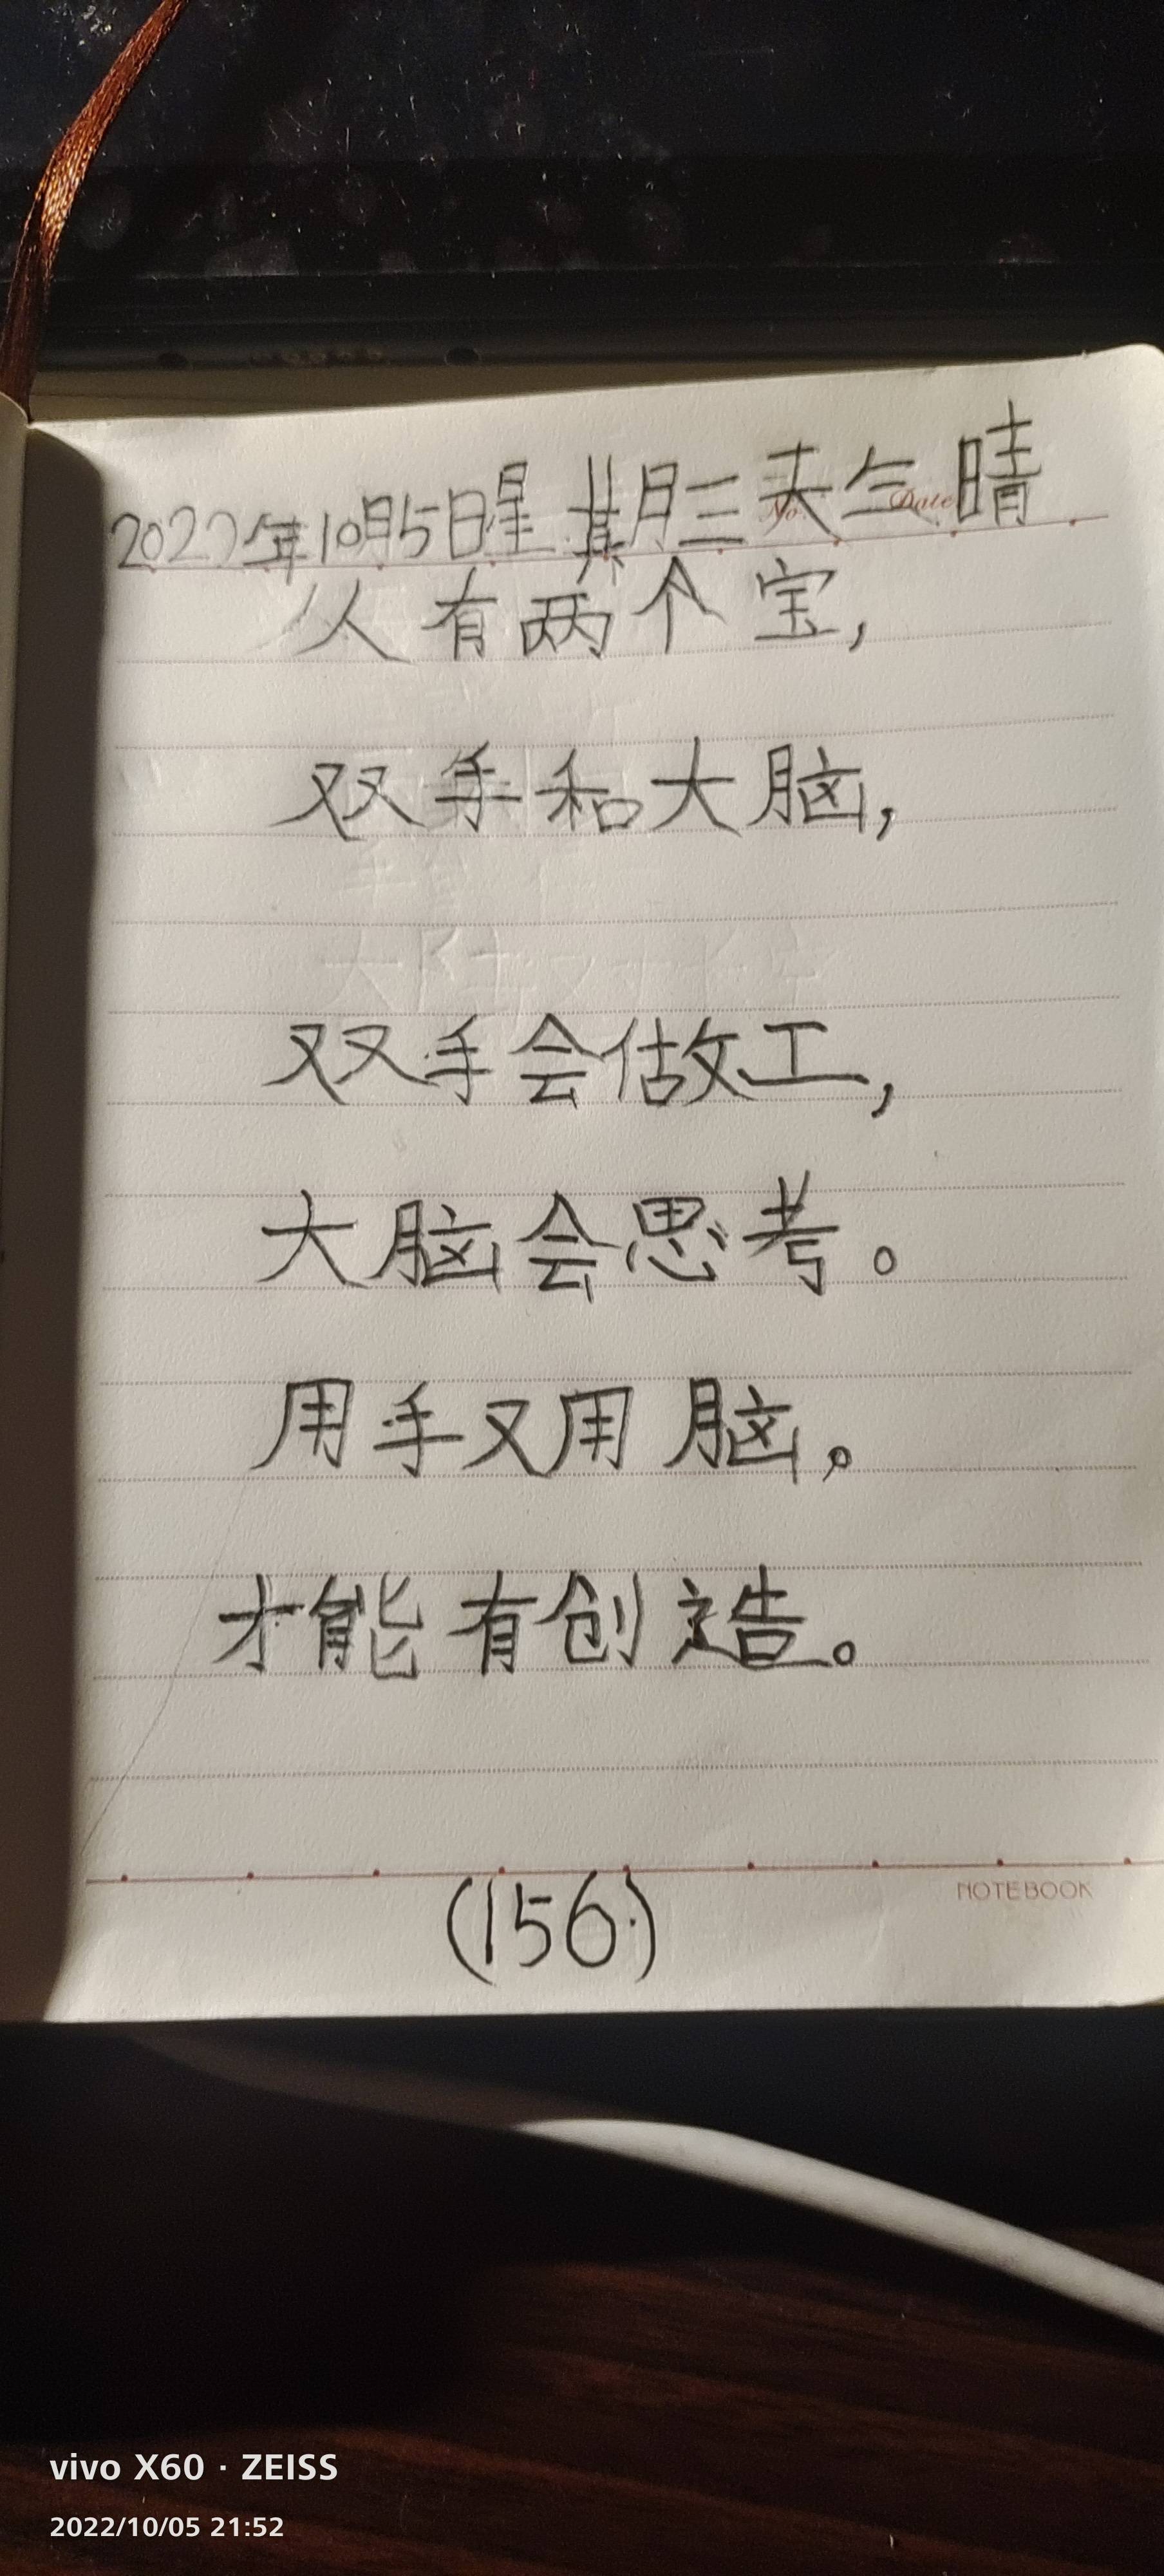 2022年10月5日星期三天气晴
No.
Date
人有两个宝,
双手和大脑,
双手会做工,
大脑会思考。
用手又用脑。
才能有创造。
NOTEBOOK
(156)
vivo X60 · ZEISS
2022/10/05 21:52